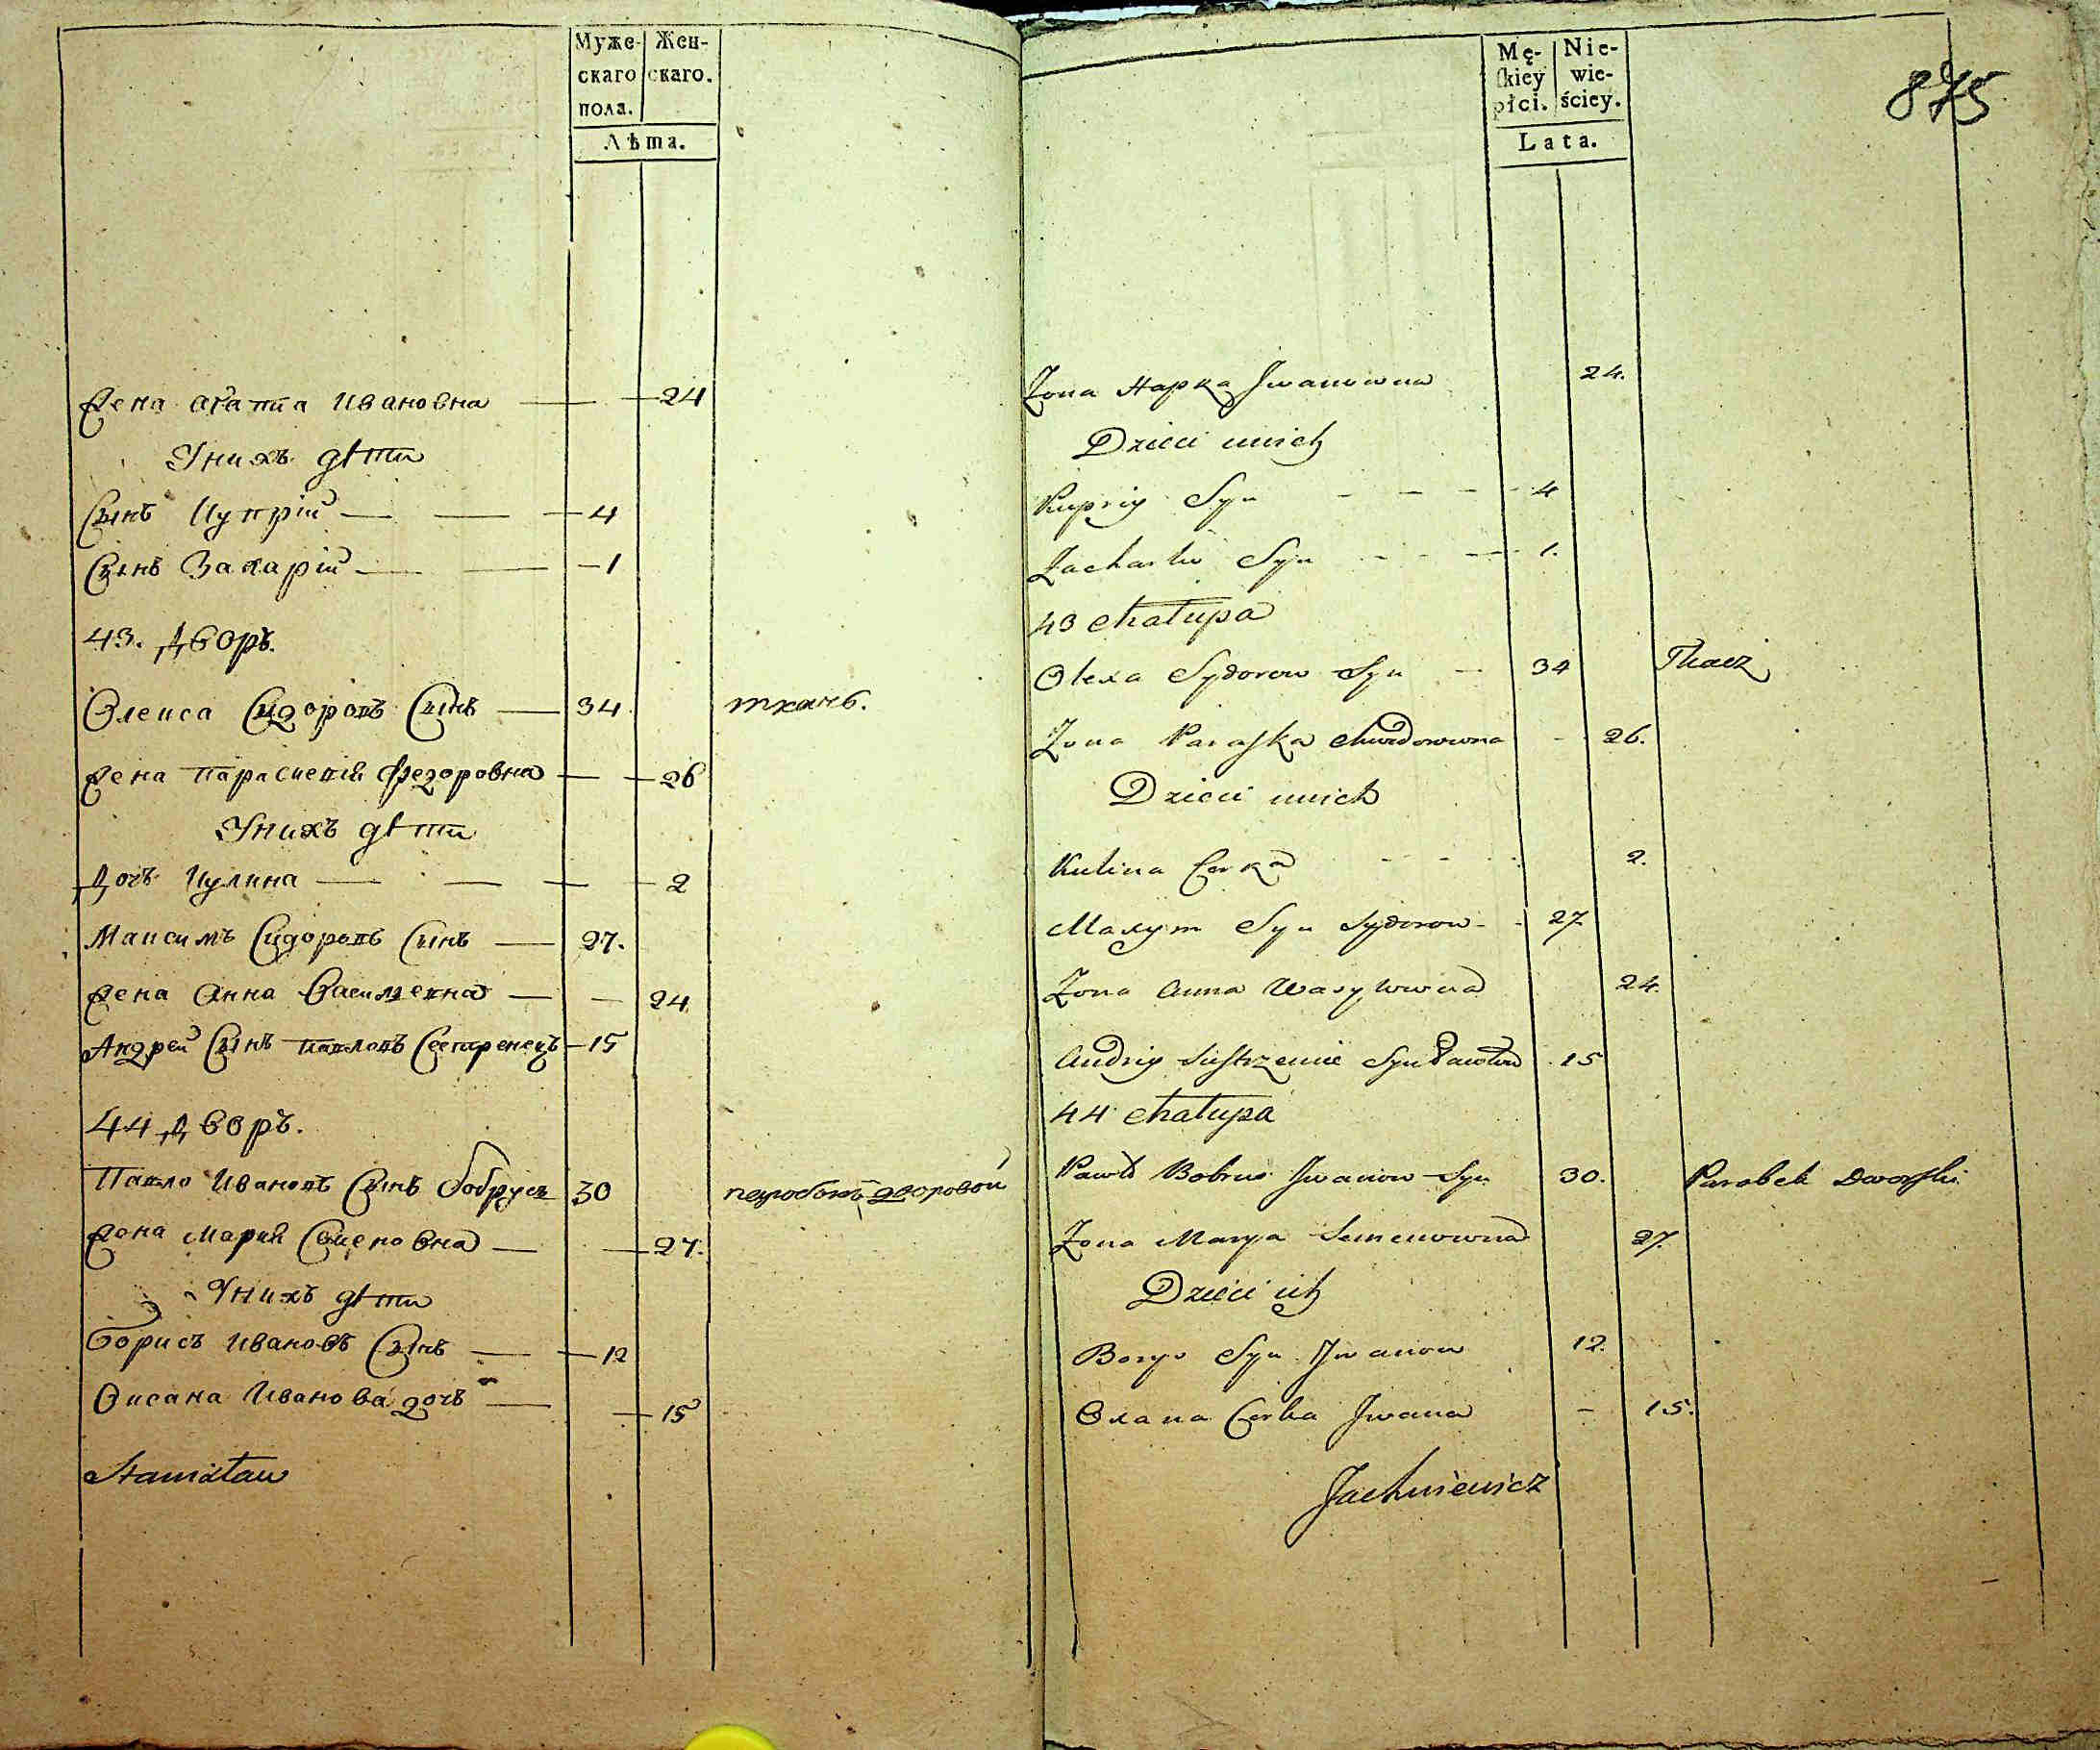 Муже- Жен-
скаго скаго.
пола.
Лѣта.
Жена Агапія Ивановна — — 24
У нихъ дѣти
Сынъ Купрій — — — 4
Сынъ Захарій — — — 1
43. Дворъ.
Олекса Сидоровъ Сынъ — 34. ткачь.
Жена Параскевія Федоровна — — 26
У нихъ дѣти
Дочь Кулина — — — — 2
Максимъ Сидоровъ Сынъ — 27.
Жена Анна Васильевна — — 24
Андрей Сынъ Павловъ Сестренецъ — 15
44 Дворъ.
Павло Ивановъ Сынъ Бобрусь 30 паробокъ дворовой
Жена Марія Семеновна — — 27.
У нихъ дѣти
Борисъ Ивановъ Сынъ — — 12
Оксана Иванова дочь — — 15
Stanisław
Mę- Nie-
skiey wie-
płci. ściey.
Lata.
875
Żona Hapka Jwanowna 24.
Dzieci unich
Kupriy Syn - - - - 4
Zacharko Syn - - - - 1.
43 chałupa
Olexa Sydorow Syn - 34 Tkacz
Żona Paraska Chwedorowna - 26.
Dzieci unich
Kulina Corka - - - 2.
Maxym Syn Sydorow - - 27
Żona Anna Wasylowna 24.
Andriy Siestrzeniec Syn Pawłow 15
44 chałupa
Pawło Bobrus Jwanow Syn 30. Parobek Dworski
Żona Marya Semenowna 27.
Dzieci ich
Borys Syn Jwanow 12.
Oxana Corka Jwana - 15.
Jachniewicz